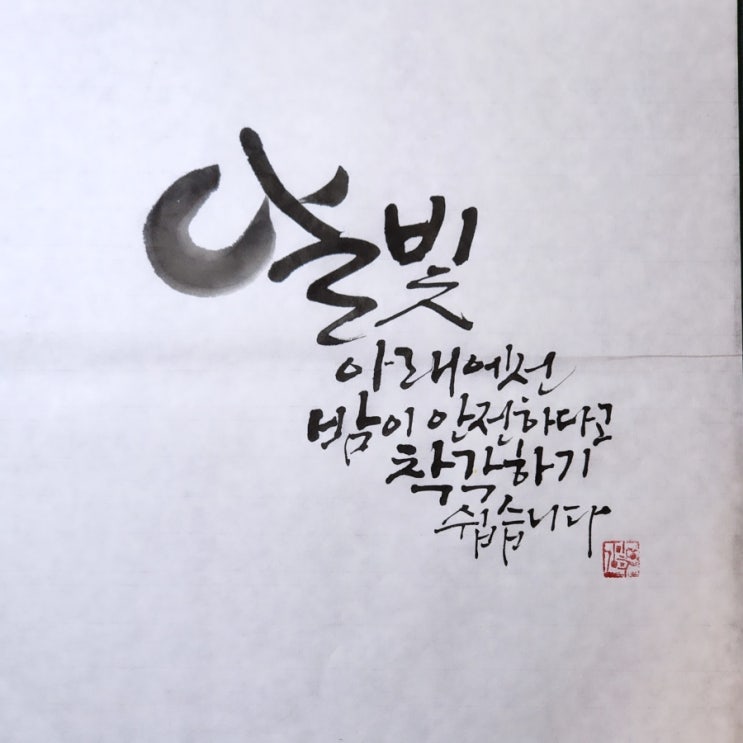 달빛
아래에선
밤이 안전하다고
착각하기
쉽습니다